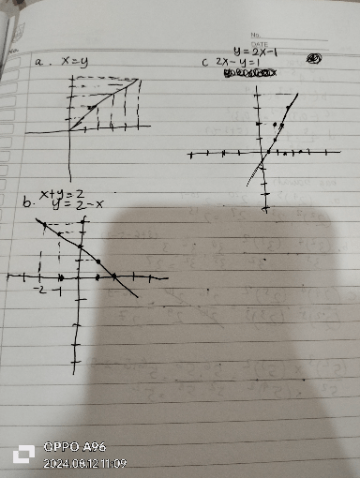 NO.
DATE
a. x=y
y=2x-1
c 2x-y=1
x+y=2
b. y=2-x
-2
OPPO A96
2024.08.12 11:09